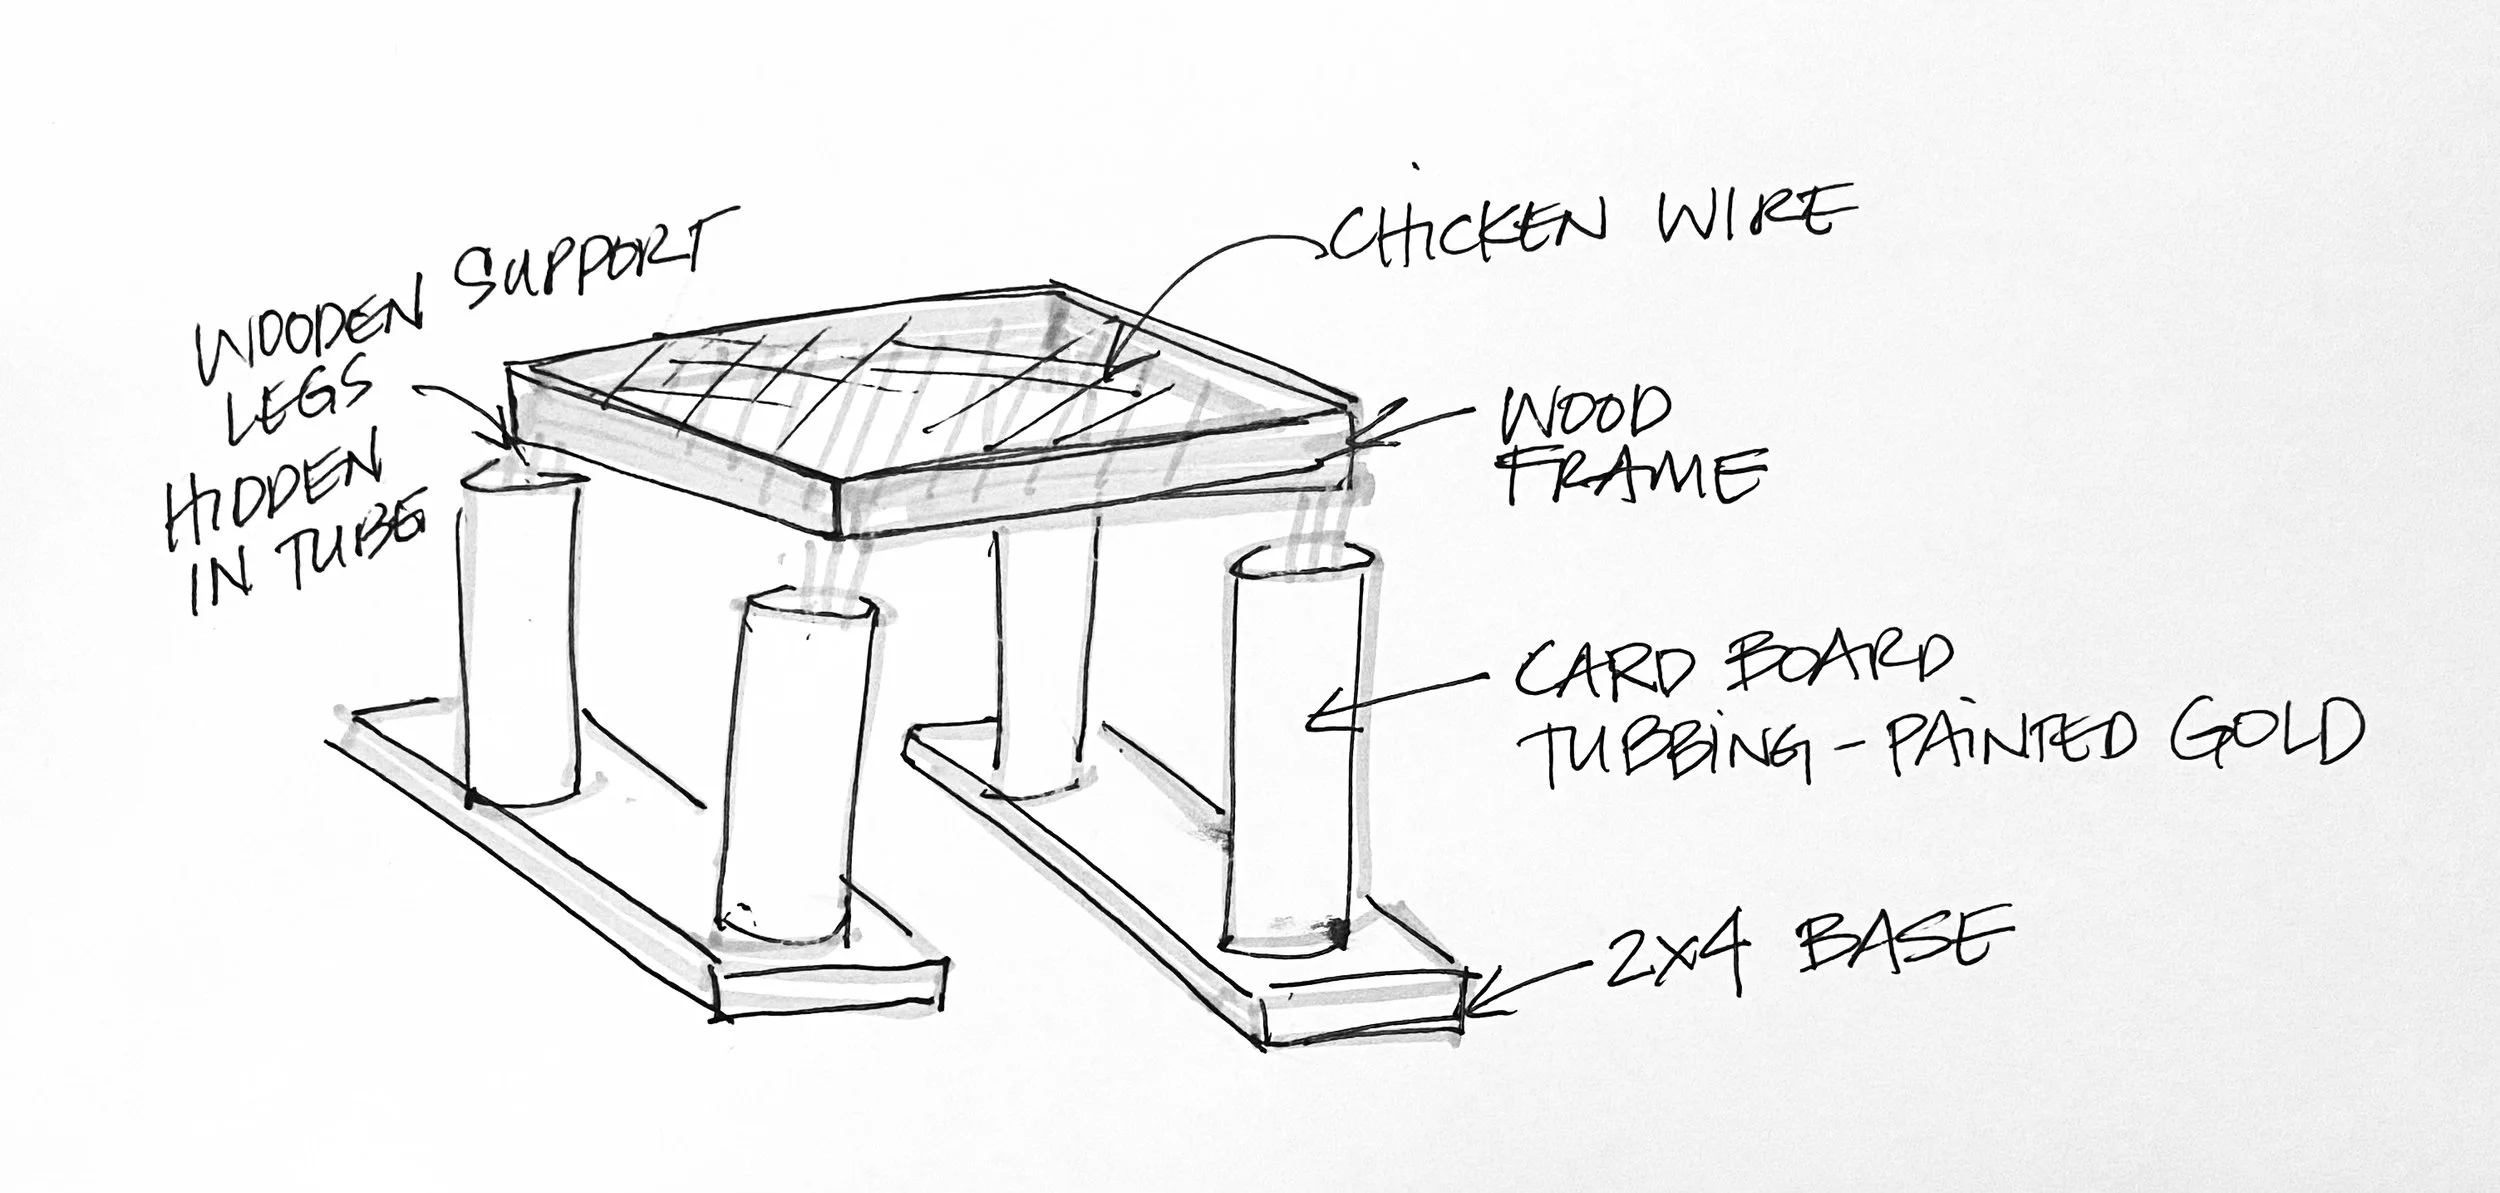 WOODEN SUPPORT
LEGS
HIDDEN
IN TUBE
CHICKEN WIRE
WOOD
FRAME
CARD BOARD
TUBBING - PAINTED GOLD
2X4 BASE